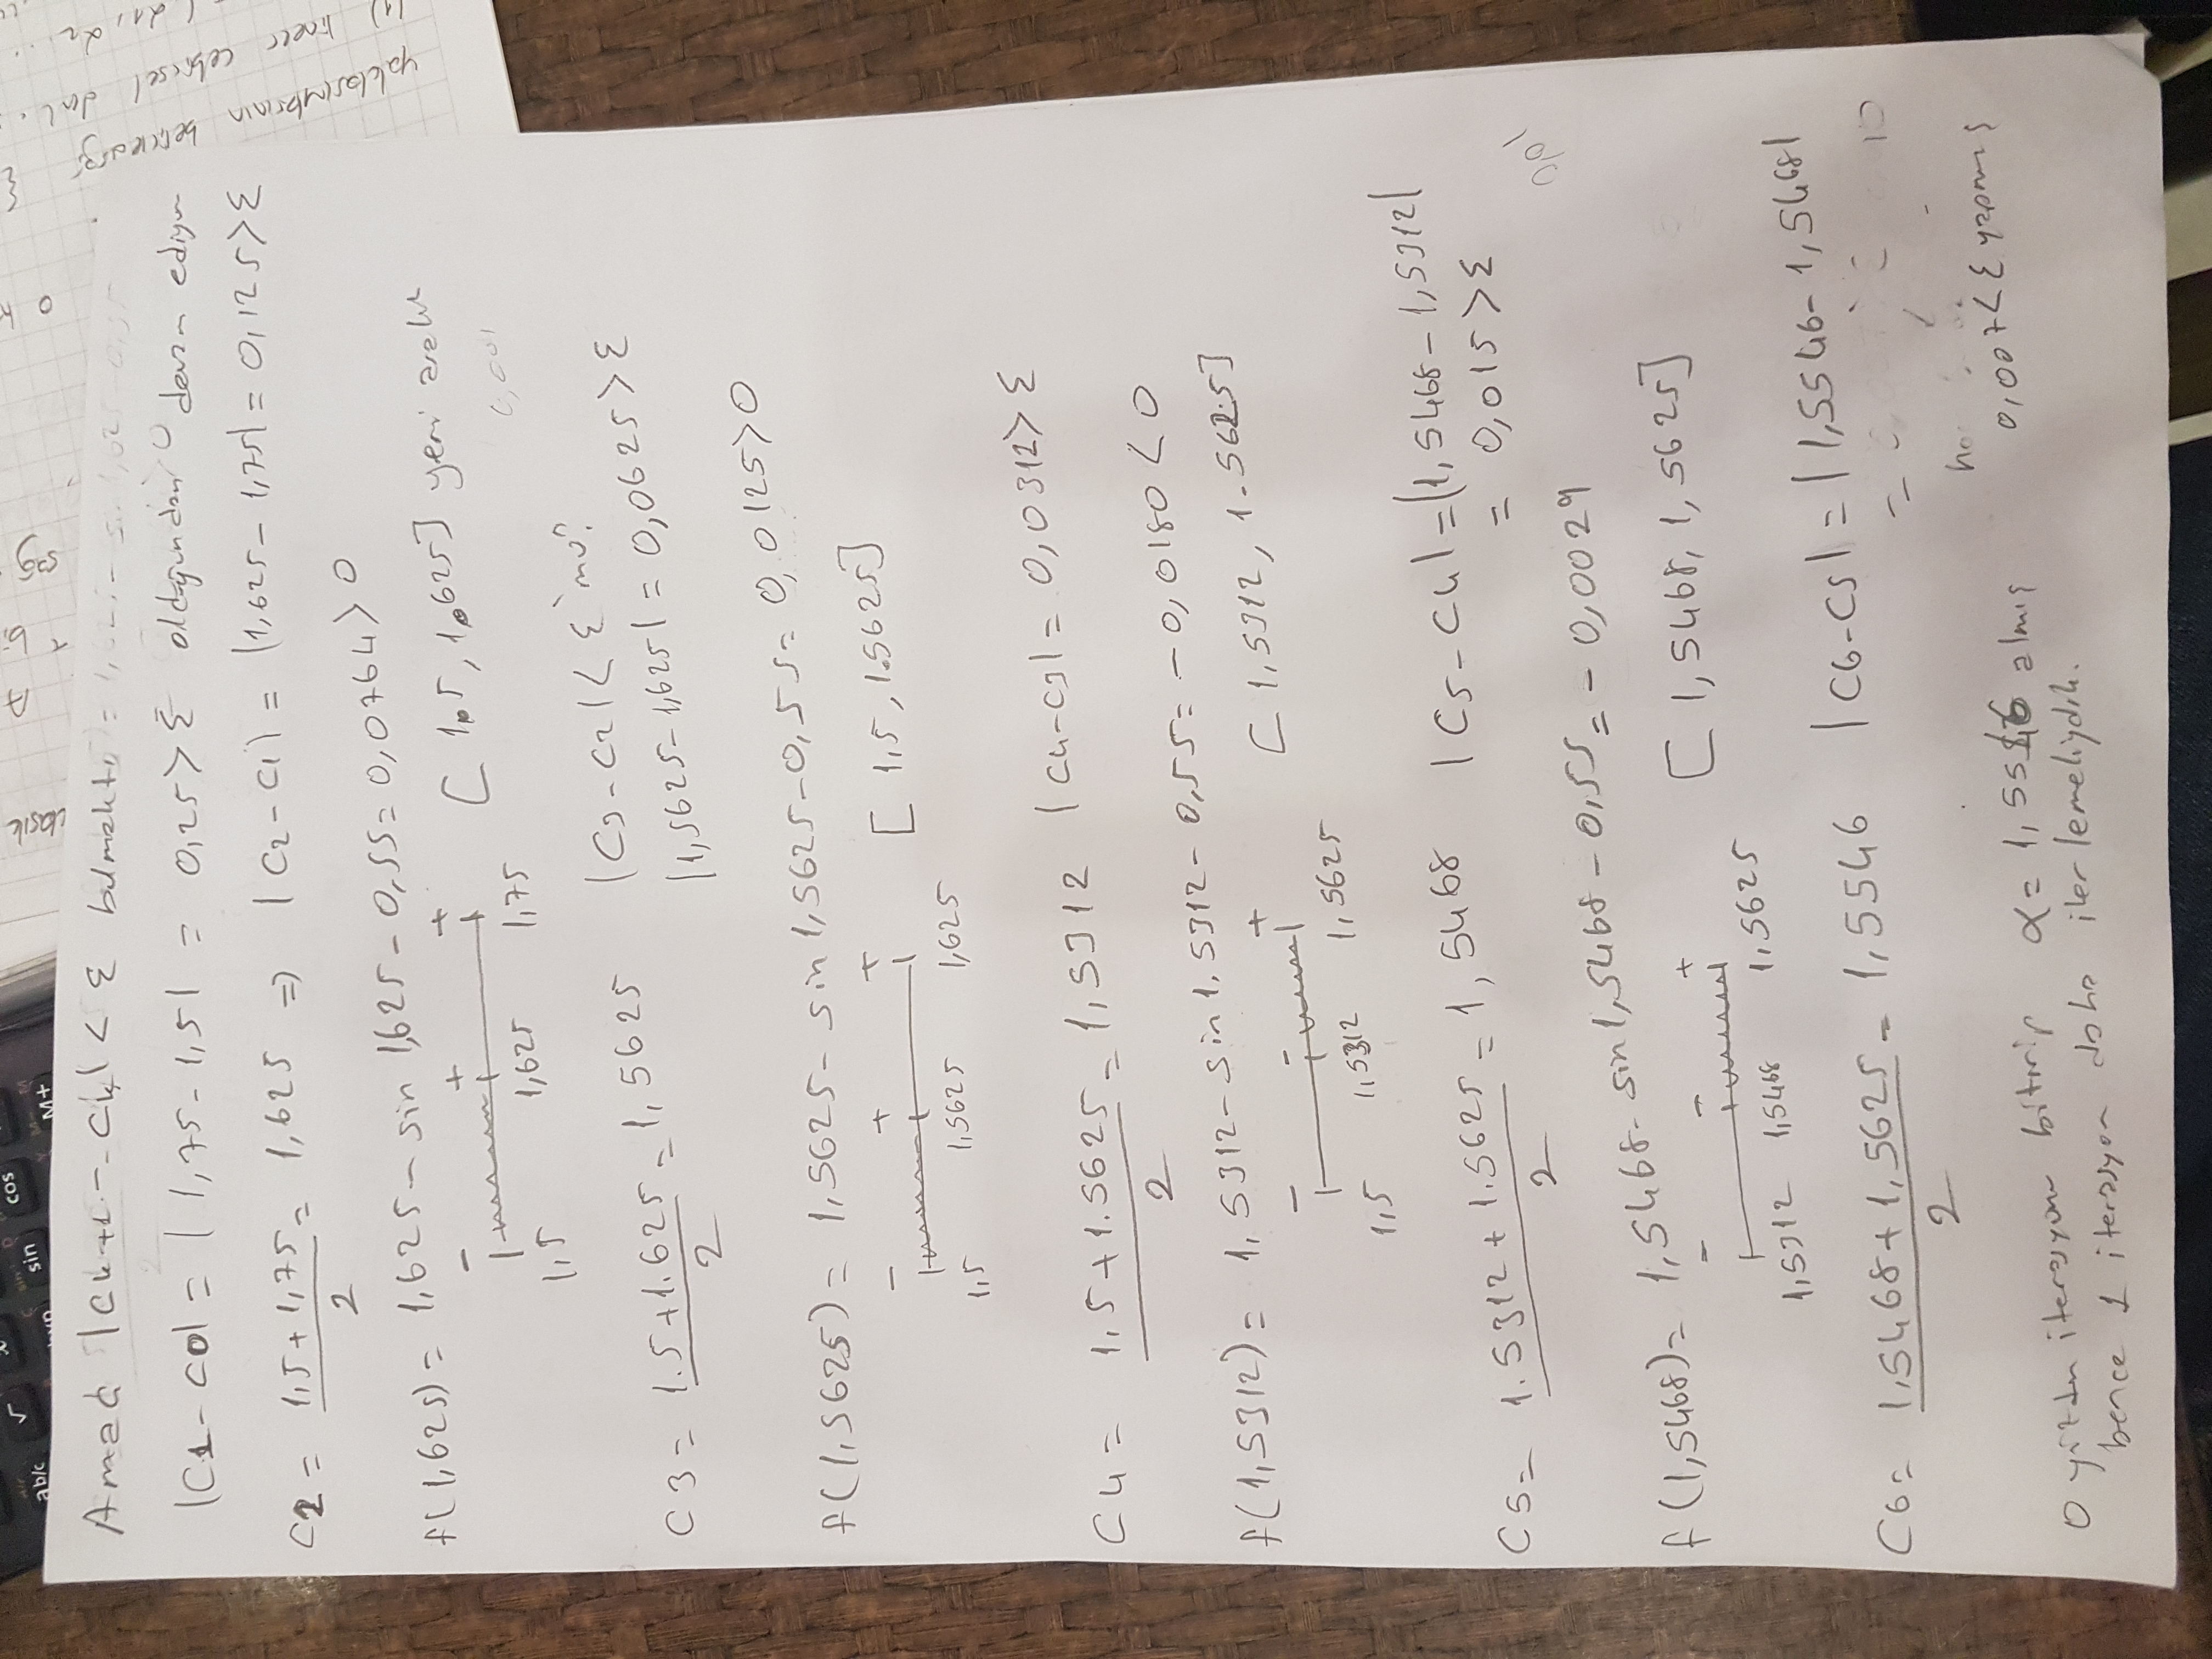 ab/c
√
sin
cos
M+
Amaç |Ck+1 - Ck| < ε bulmaktı
|C1 - C0| = |1,75 - 1,5| = 0,25 > ε olduğundan devam ediyor
C2 = (1,5 + 1,75)/2 = 1,625 ⇒ |C2 - C1| = |1,625 - 1,75| = 0,125 > ε
f(1,625) = 1,625 - sin 1,625 - 0,55 = 0,0764 > 0
- + + [1.5, 1.625] yeni aralık
1,5 1,625 1,75
0,001
C3 = (1.5 + 1.625)/2 = 1,5625 |C3 - C2| < ε mu?
|1,5625 - 1,625| = 0,0625 > ε
f(1,5625) = 1,5625 - sin 1,5625 - 0,55 = 0,0125 > 0
- + + [1,5, 1.5625]
1,5 1,5625 1,625
C4 = (1,5 + 1.5625)/2 = 1,5312 |C4 - C3| = 0,0312 > ε
f(1,5312) = 1,5312 - sin 1.5312 - 0,55 = -0,0180 < 0
- - + [1,5312, 1.5625]
1,5 1,5312 1,5625
C5 = (1.5312 + 1.5625)/2 = 1,5468 |C5 - C4| = |1,5468 - 1,5312|
= 0,015 > ε
0,01
f(1,5468) = 1,5468 - sin 1,5468 - 0,55 = -0,0029
- - + [1,5468, 1,5625]
1,5312 1,5468 1,5625
C6 = (1,5468 + 1,5625)/2 = 1,5546 |C6 - C5| = |1,5546 - 1,5468|
=
0,007 < ε yapmış
O yüzden iterasyonu bitirip α = 1,5546 almış
bence 1 iterasyon daha ilerlemeliydik.
yaklaşımların belirlediği
lineer cebirsel